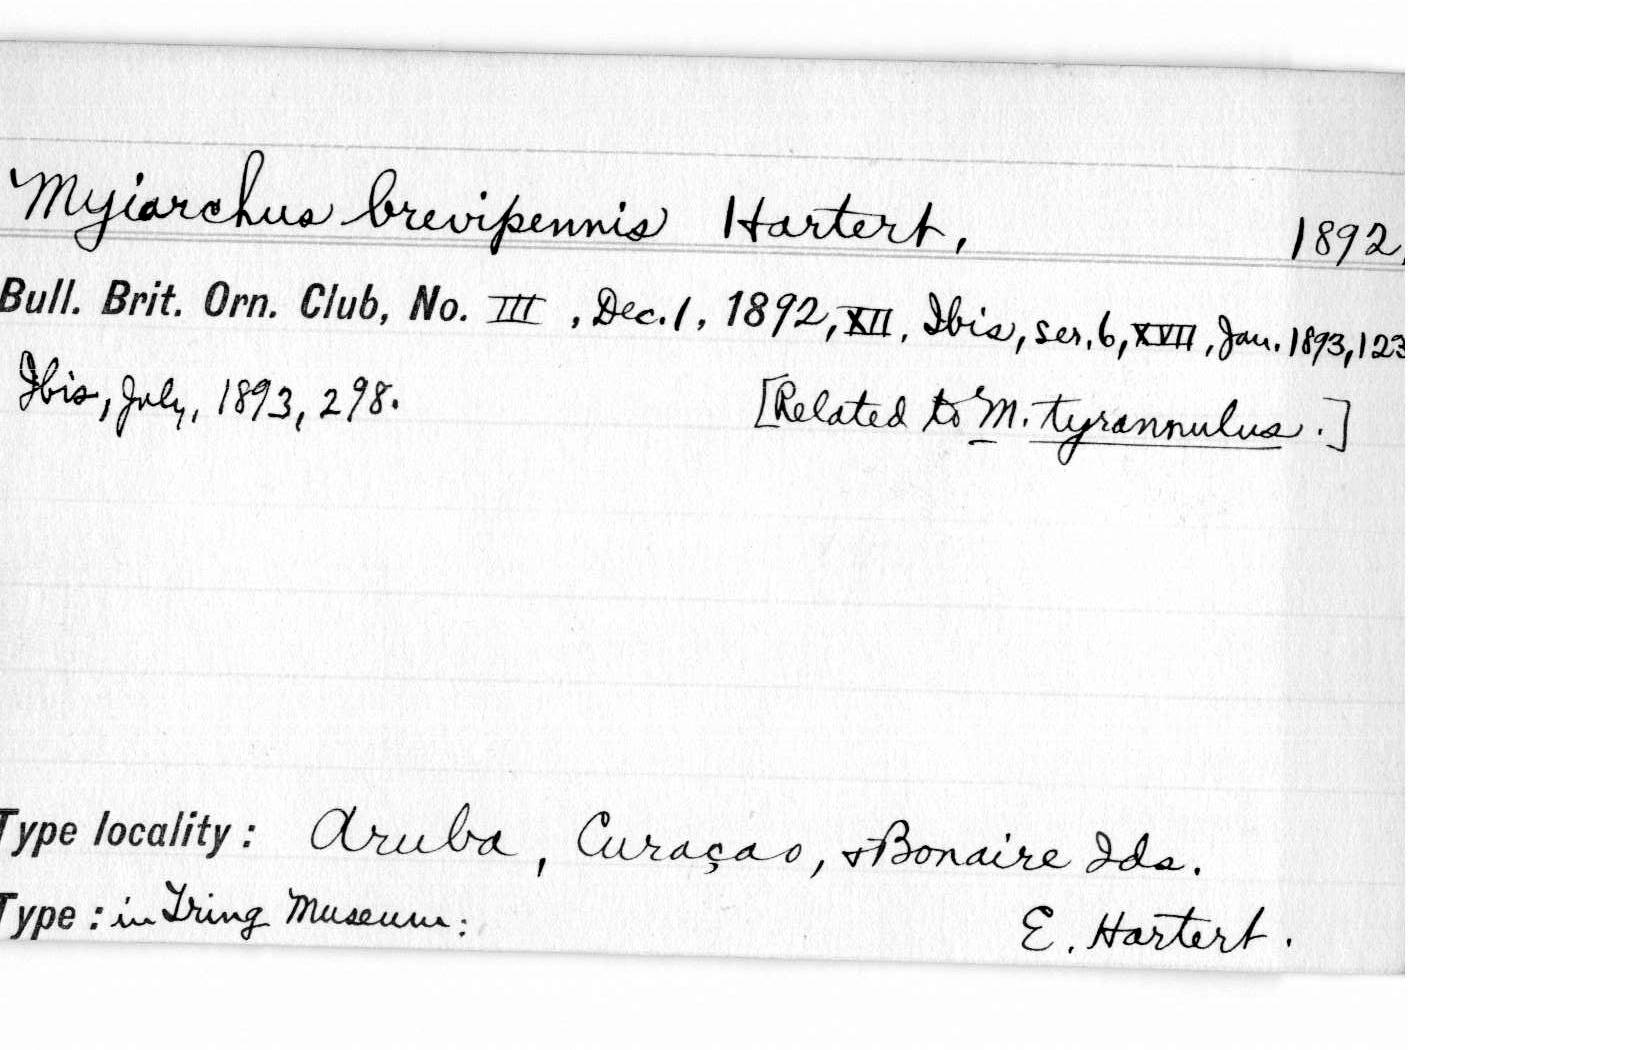 Myiarchus brevipennis Hartert, 1892,
Bull. Brit. Orn. Club, No. III, Dec. 1, 1892, XII, Ibis, ser. 6, XVII, Jan. 1893, 123
Ibis, July, 1893, 298. [Related to M. tyrannulus.]
Type locality: Aruba, Curaçao, & Bonaire Ids.
Type: in Tring Museum: E. Hartert.